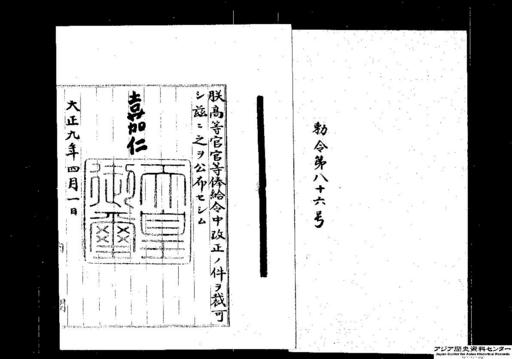 勅令第八十六号
朕高等官官等俸給令中改正ノ件ヲ裁可
シ茲ニ之ヲ公布セシム
嘉仁
天皇御璽
大正九年四月一日
アジア歴史資料センター
Japan Center for Asian Historical Records